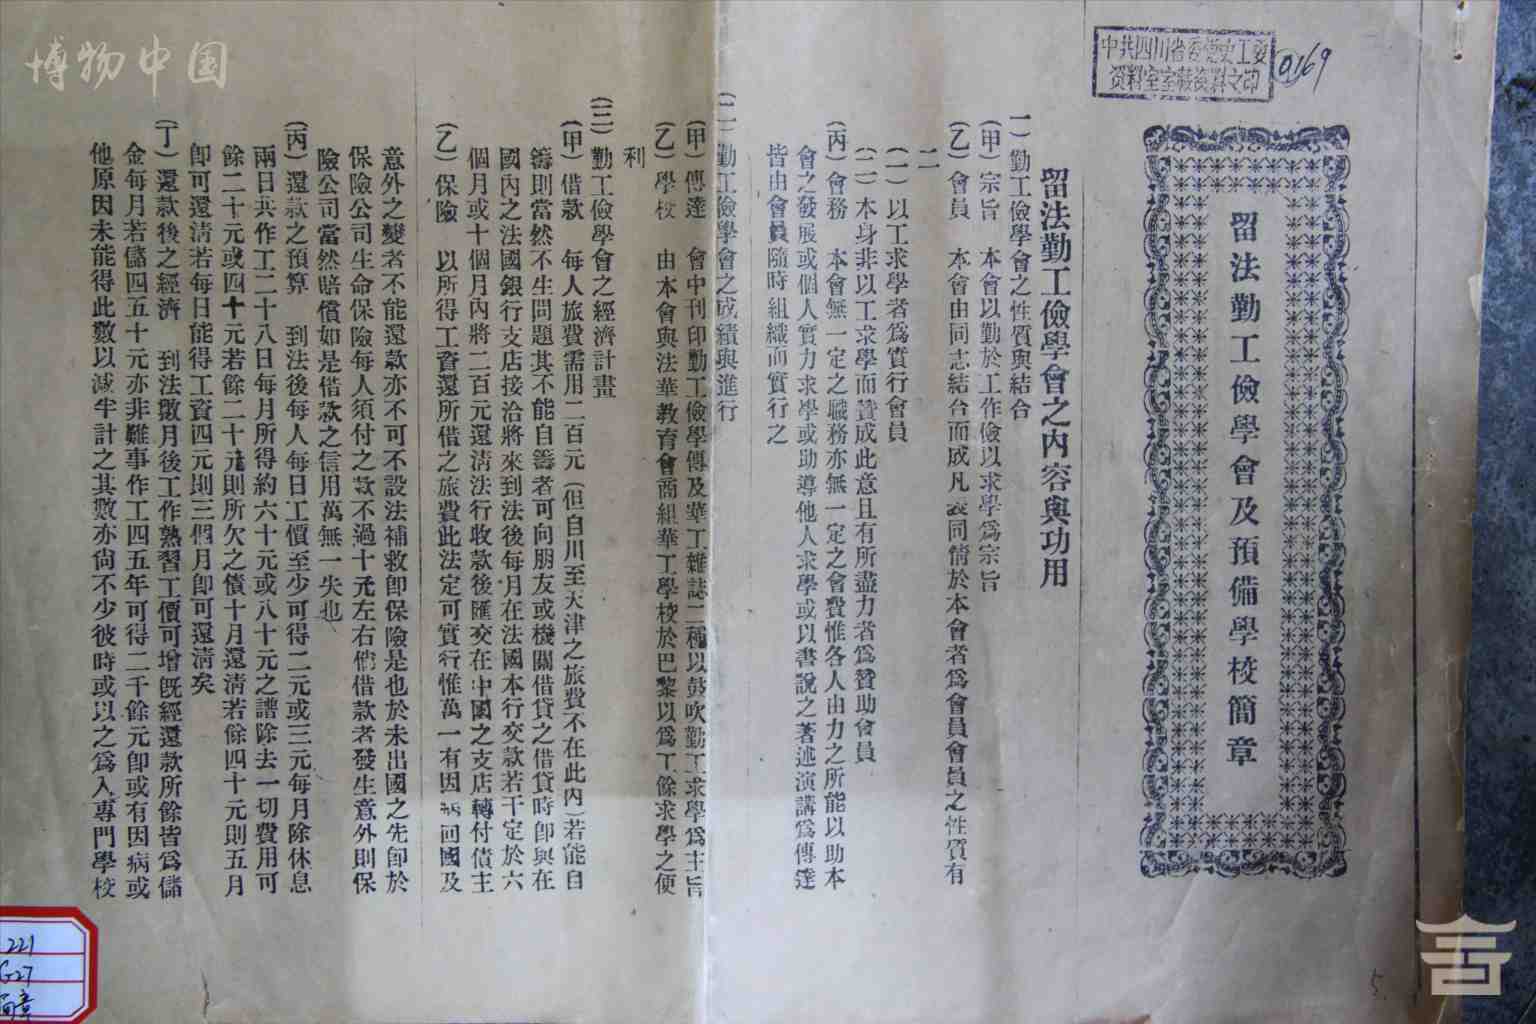 博物中国
中共四川省委党史工委
资料室室藏资料之印
0169
留法勤工儉學會及預備學校簡章
留法勤工儉學會之內容與功用
一）勤工儉學會之性質與結合
（甲）宗旨　本會以勤於工作儉以求學爲宗旨
（乙）會員　本會由同志結合而成凡表同情於本會者爲會員會員之性質有
二
（一）以工求學者爲實行會員
（二）本身非以工求學而贊成此意且有所盡力者爲贊助會員
（丙）會務　本會無一定之職務亦無一定之會費惟各人由力之所能以助本
會之發展或個人實力求學或助導他人求學或以書說之著述演講爲傳達
皆由會員隨時組織而實行之
（二）勤工儉學會之成績與進行
（甲）傳達　會中刊印勤工儉學傳及華工雜誌二種以鼓吹勤工求學爲主旨
（乙）學校　由本會與法華教育會商組華工學校於巴黎以爲工餘求學之便
利
（三）勤工儉學會之經濟計畫
（甲）借款　每人旅費需用二百元（但自川至天津之旅費不在此內）若能自
籌則當然不生問題其不能自籌者可向朋友或機關借貸之借貸時卽與在
國內之法國銀行支店接洽將來到法後每月在法國本行交款若干定於六
個月或十個月內將二百元還清法行收款後匯交在中國之支店轉付債主
（乙）保險　以所得工資還所借之旅費此法定可實行惟萬一有因病回國及
意外之變者不能還款亦不可不設法補救卽保險是也於未出國之先卽於
保險公司生命保險每人須付之款不過十元左右倘借款者發生意外則保
險公司當然賠償如是借款之信用萬無一失也
（丙）還款之預算　到法後每人每日工價至少可得二元或三元每月除休息
兩日共作工二十八日每月所得約六十元或八十元之譜除去一切費用可
餘二十元或四十元若餘二十元則所欠之債十月還清若餘四十元則五月
卽可還清若每日能得工資四元則三個月卽可還清矣
（丁）還款後之經濟　到法數月後工作熟習工價可增旣經還款所餘皆爲儲
金每月若儲四五十元亦非難事作工四五年可得二千餘元卽或有因病或
他原因未能得此數以減半計之其數亦尙不少彼時或以之爲入專門學校
221
G27
簡章
5